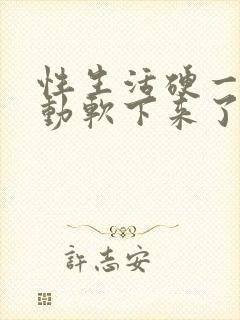 性生活硬一
動軟下来了
許志安